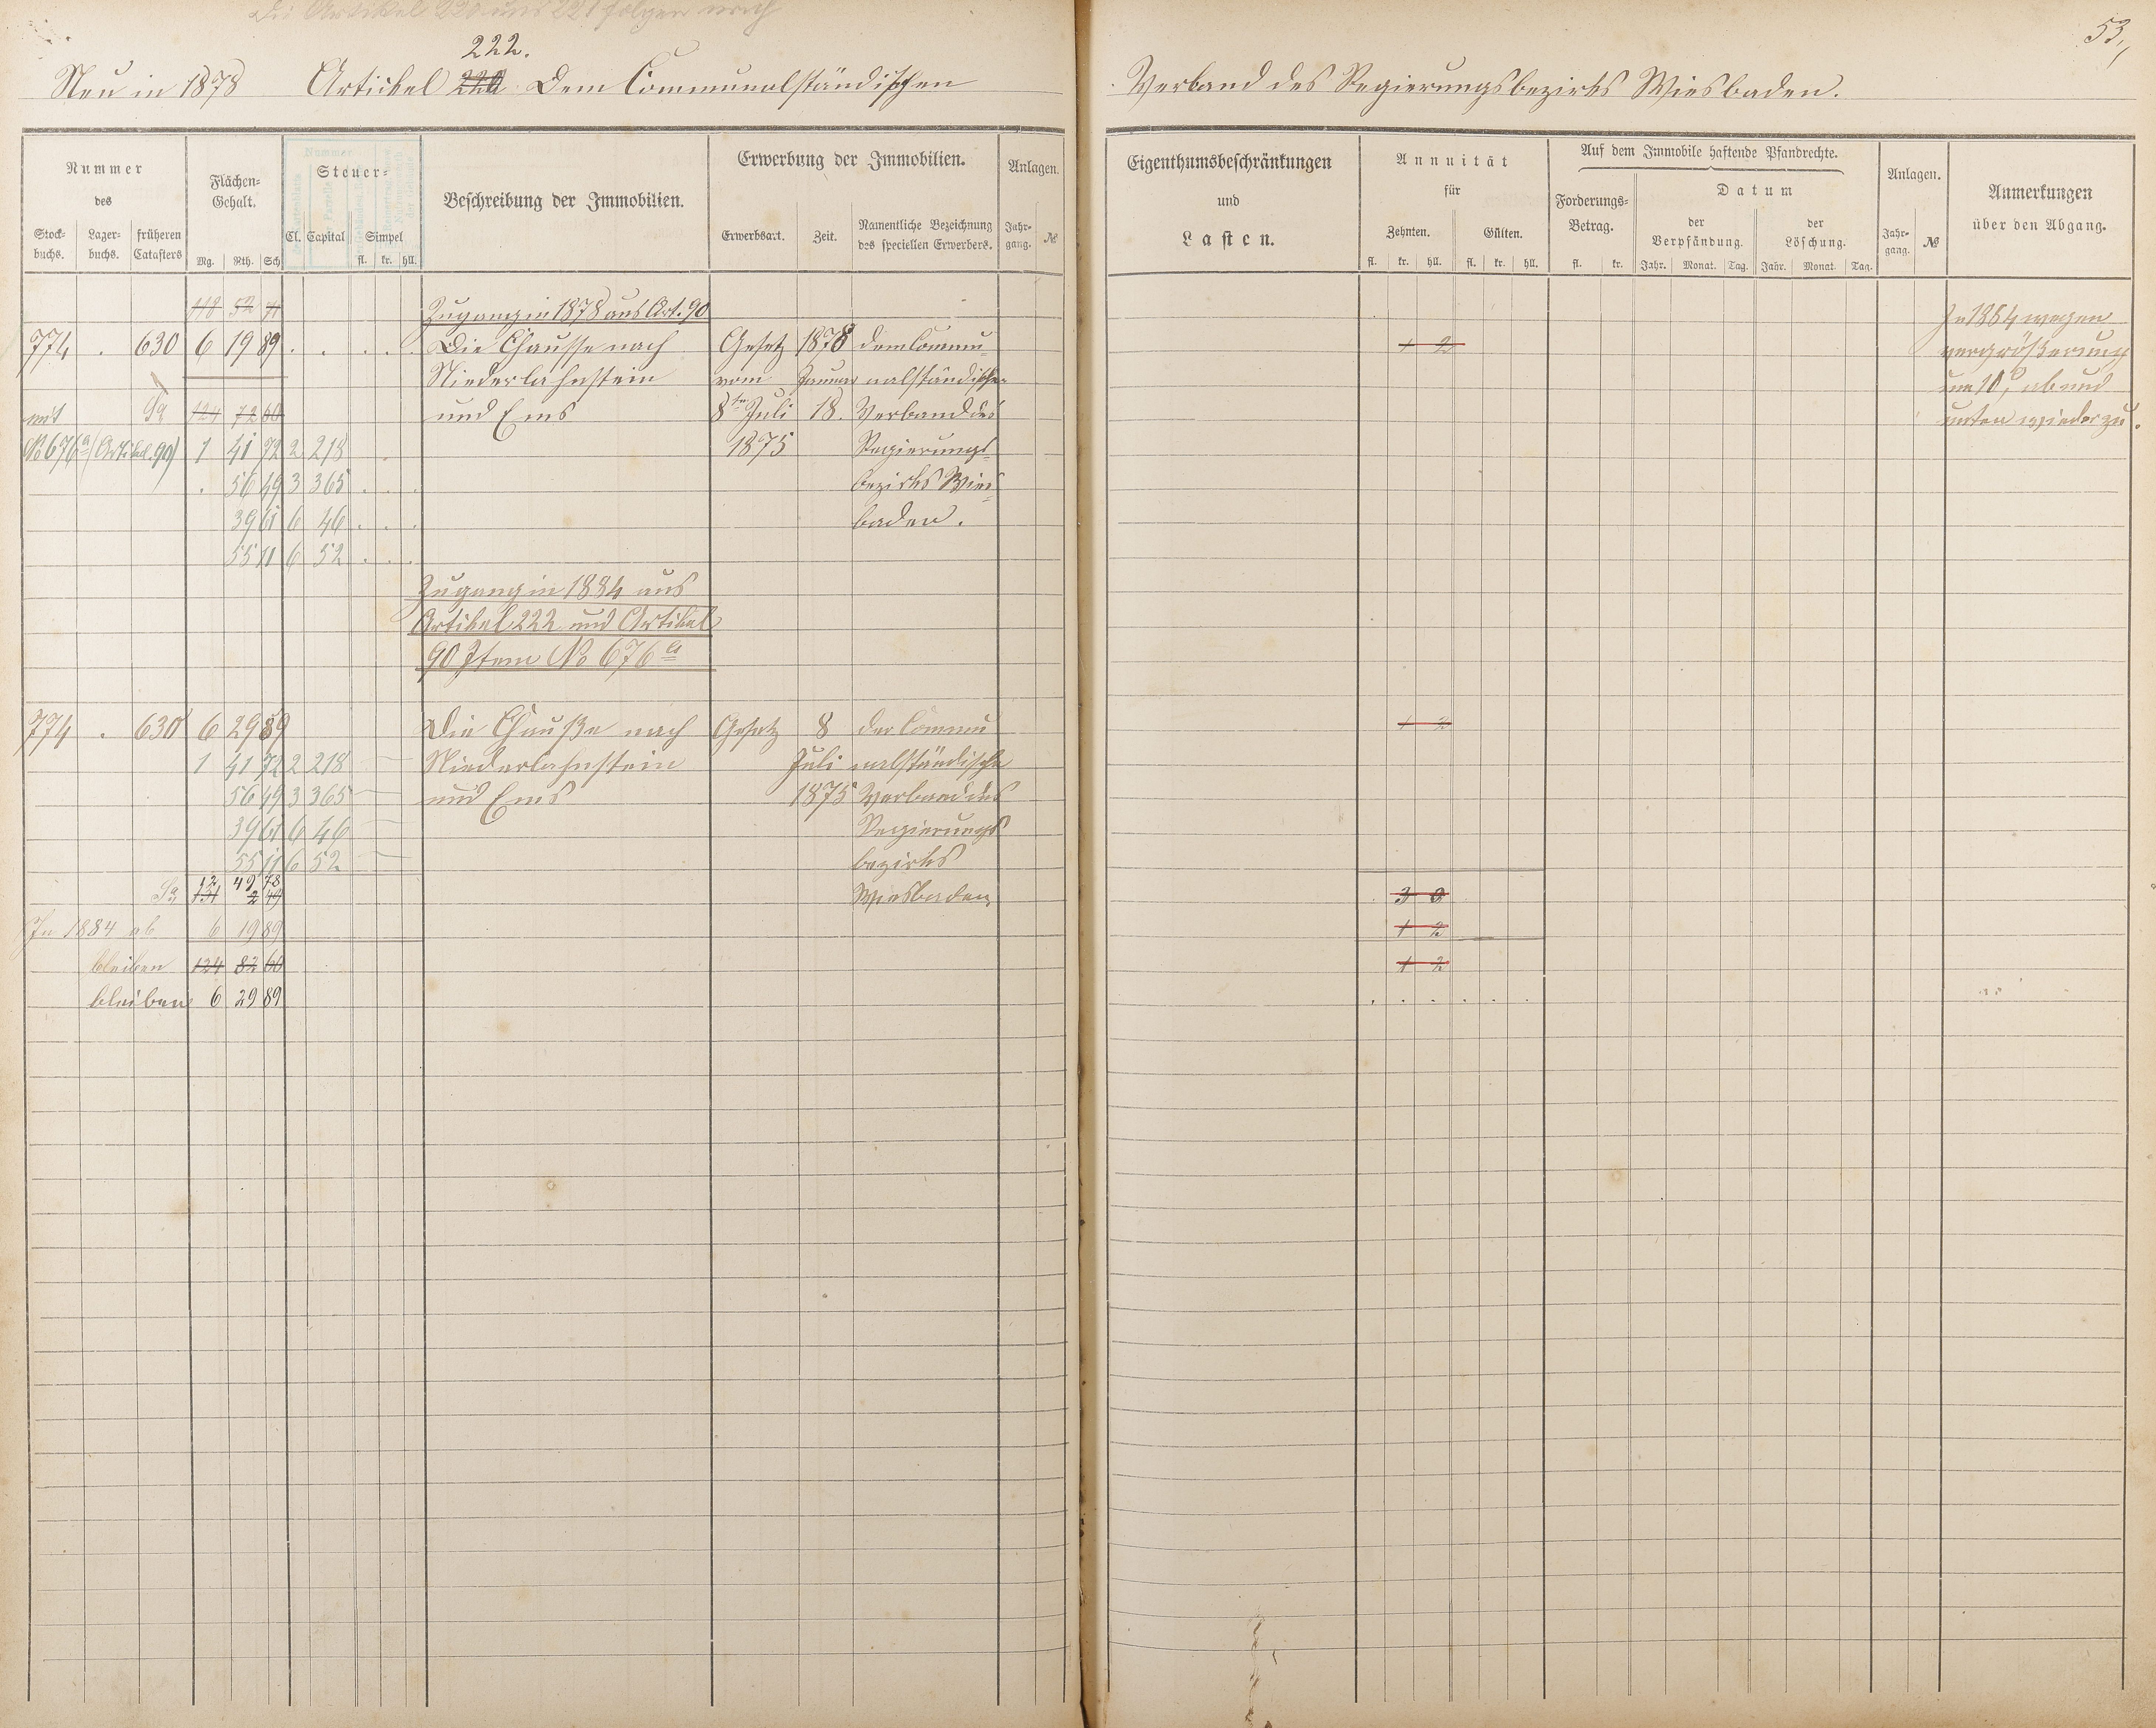 Die Artikel 220 und 221 folgen noch
53,,
222.
Neu in 1878 Artickel 220 Dem Communalständischen Verband des Regierungsbezirks Wiesbaden.
Nummer
des
Stock-
buchs.
Lager-
buchs.
früheren
Catasters
Flächen-
Gehalt.
Mg. Rth. Sch
Steuer-
Cl. Capital Simpel
fl. kr. hll.
Beschreibung der Immobilien.
Erwerbung der Immobilien.
Erwerbsart. Zeit.
Namentliche Bezeichnung
des speciellen Erwerbers.
Anlagen.
Jahr-
gang.
№
Eigenthumsbeschränkungen
und
Lasten.
Annuität
für
Zehnten. Gülten.
fl. kr. hll. fl. kr. hll.
Auf dem Immobile haftende Pfandrechte.
Forderungs-
Betrag.
fl. kr.
Datum
der
Verpfändung.
der
Löschung.
Jahr. Monat. Tag. Jahr. Monat. Tag.
Anlagen.
Jahr-
gang.
№
Anmerkungen
über den Abgang.
118 52 71 Zugang in 1878 aus Art. 90
774 . 630 6 19 89 Die Chausse nach Gesetz 1878 dem Commu- 1 2
Niederlahnstein vom Januar nalständischen
mit Sa 124 72 60 und Ems 8ten Juli 18. Verband des
No 676a (Artikel 90) 1 41 72 2 218 1875 Regierungs-
. 56 49 3 365 bezirks Wies-
39 61 6 46 baden.
55 11 6 52
In 1884 wegen
vergrößerung
um 10, ab und
unten wieder zu.
Zugang in 1884 aus
Artikel 222 und Artikel
90 Item No 676a
774 . 630 6 29 89 Die Chaußee nach Gesetz 8 der Commu 1 2
1 41 72 2 218 Niederlahnstein Juli nalständische
56 49 3 365 und Ems 1875 Verband des
39 61 6 46 Regierungs
55 11 6 52 bezirks
12 49 78
Sa 131 2 49 Wiesbaden. 3
In 1884 ab 6 19 89 1 2
bleiben 124 82 60 1 2
bleiben 6 29 89